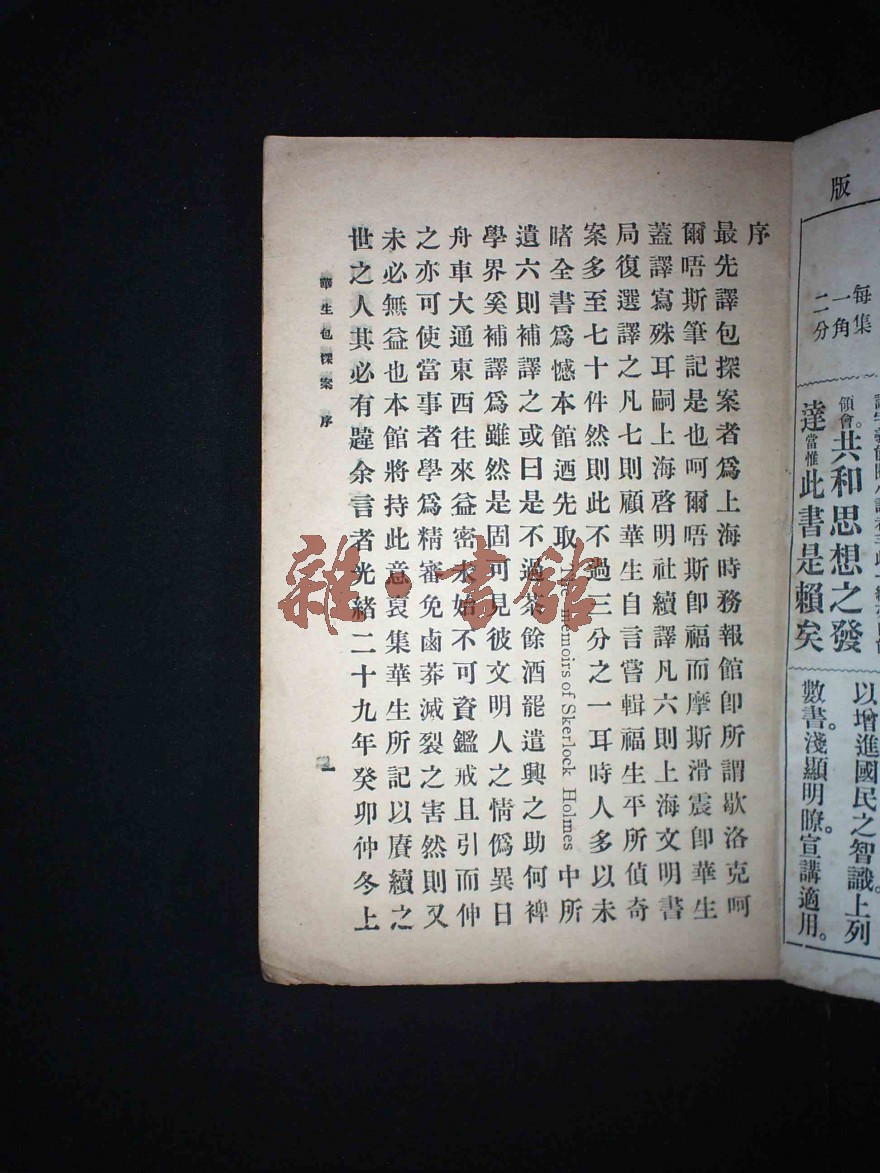 序
最先譯包探案者爲上海時務報館卽所謂歇洛克呵
爾唔斯筆記是也呵爾唔斯卽福而摩斯滑震卽華生
蓋譯寫殊耳嗣上海啓明社續譯凡六則上海文明書
局復選譯之凡七則顧華生自言嘗輯福生平所偵奇
案多至七十件然則此不過三分之一耳時人多以未
睹全書爲憾本館迺先取The memoirs of Skerlock Holmes中所
遺六則補譯之或曰是不過茶餘酒罷遣興之助何裨
學界奚補譯爲雖然是固可見彼文明人之情僞異日
舟車大通東西往來益密未始不可資鑑戒且引而伸
之亦可使當事者學爲精審免鹵莽滅裂之害然則又
未必無益也本館將持此意裒集華生所記以賡續之
世之人其必有韙余言者光緒二十九年癸卯仲冬上
華生包探案 序
一
雜·書館
版
每集
一角
二分
領會。共和思想之發
達當惟此書是賴矣
以增進國民之智識。上列
數書。淺顯明瞭。宣講適用。